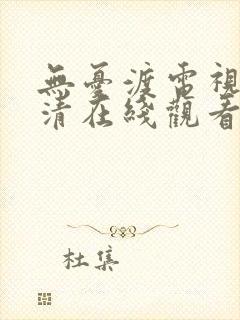 無憂渡電視
清在綫觀看
杜集